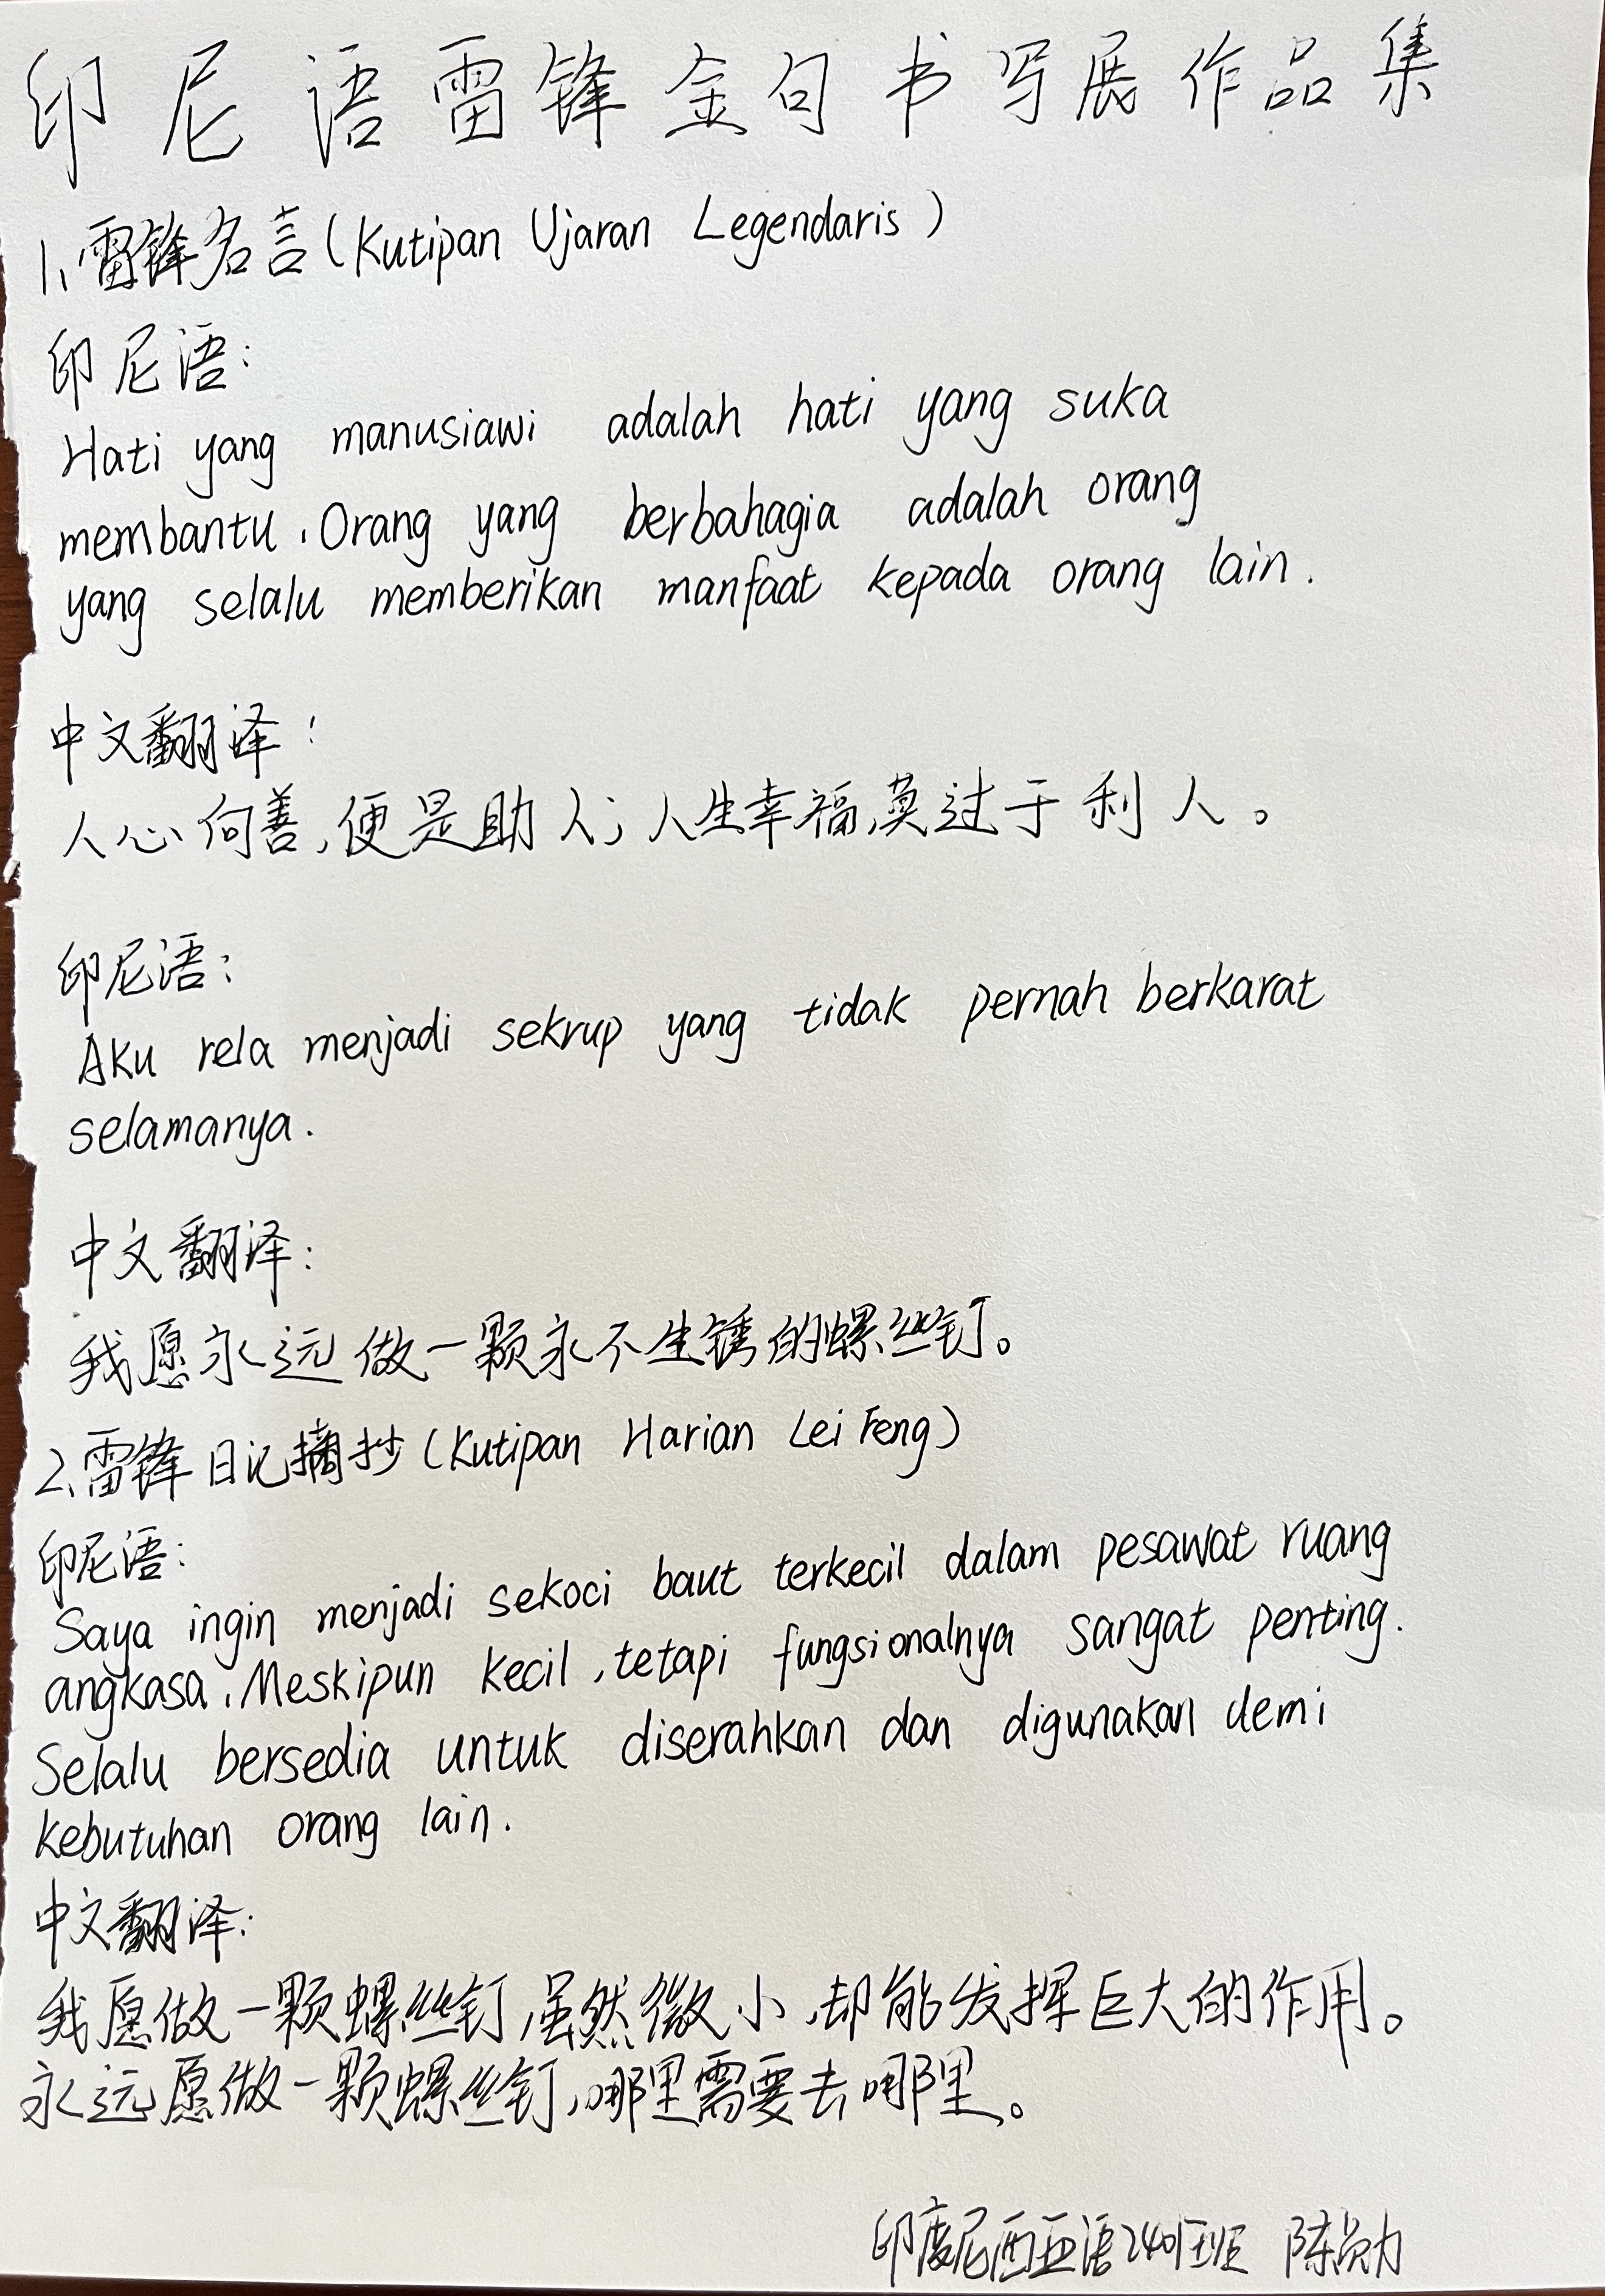 印尼语雷锋金句书写展作品集
1、雷锋名言(Kutipan Ujaran Legendaris)
印尼语:
Hati yang manusiawi adalah hati yang suka
membantu. Orang yang berbahagia adalah orang
yang selalu memberikan manfaat kepada orang lain.
中文翻译:
人心向善,便是助人;人生幸福,莫过于利人。
印尼语:
Aku rela menjadi sekrup yang tidak pernah berkarat
selamanya.
中文翻译:
我愿永远做一颗永不生锈的螺丝钉。
2、雷锋日记摘抄(Kutipan Harian Lei Feng)
印尼语:
Saya ingin menjadi sekoci baut terkecil dalam pesawat ruang
angkasa. Meskipun kecil, tetapi fungsionalnya sangat penting.
Selalu bersedia untuk diserahkan dan digunakan demi
kebutuhan orang lain.
中文翻译:
我愿做一颗螺丝钉,虽然微小,却能发挥巨大的作用。
永远愿做一颗螺丝钉,哪里需要去哪里。
印度尼西亚语2401班 陈